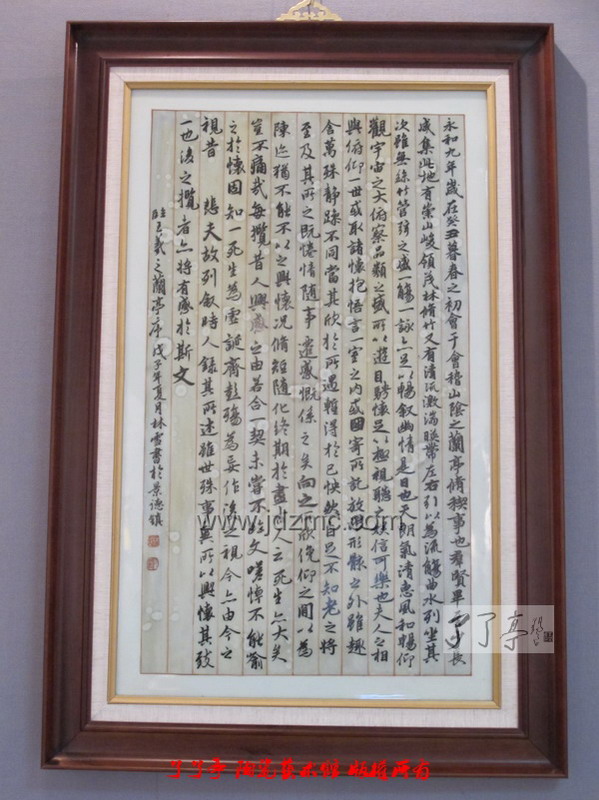 永和九年歲在癸丑暮春之初會于會稽山陰之蘭亭脩稧事也羣賢畢至少長
咸集此地有崇山峻領茂林脩竹又有清流激湍暎帶左右引以為流觴曲水列坐其
次雖無絲竹管弦之盛一觴一詠亦足以暢叙幽情是日也天朗氣清惠風和暢仰
觀宇宙之大俯察品類之盛所以遊目騁懷足以極視聽之娱信可樂也夫人之相
與俯仰一世或取諸懷抱悟言一室之內或因寄所託放浪形骸之外雖趣
舍萬殊靜躁不同當其欣於所遇暫得於己快然自足不知老之將
至及其所之既惓情隨事遷感慨係之矣向之所欣俛仰之間以為
陳迹猶不能不以之興懷况脩短隨化終期於盡古人云死生亦大矣
豈不痛哉每攬昔人興感之由若合一契未嘗不臨文嗟悼不能喻
之於懷固知一死生為虛誕齊彭殤為妄作後之視今亦由今之
視昔 悲夫故列叙時人錄其所述雖世殊事異所以興懷其致
一也後之攬者亦將有感於斯文
臨王羲之蘭亭序 戊子年夏月林雪書於景德鎮
www.jdzmc.com
了了亭
了了亭 陶瓷美术馆 版权所有